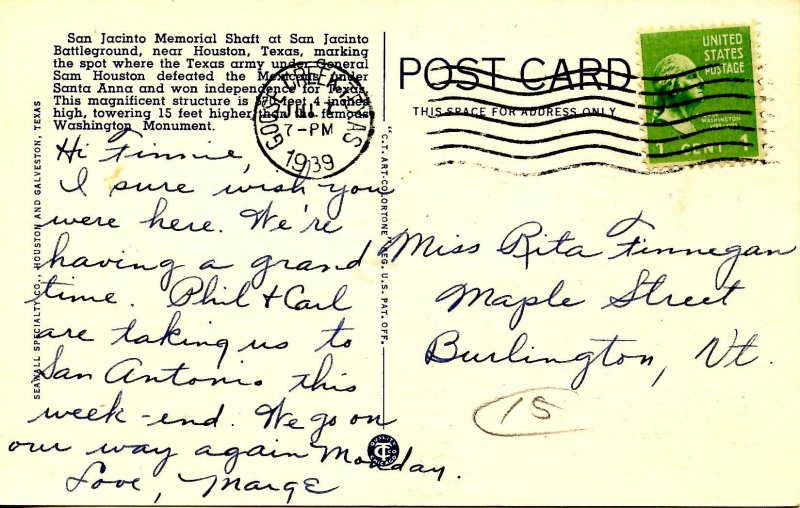 San Jacinto Memorial Shaft at San Jacinto
Battleground, near Houston, Texas, marking
the spot where the Texas army under General
Sam Houston defeated the Mexicans under
Santa Anna and won independence for Texas.
This magnificent structure is 570 feet 4 inches
high, towering 15 feet higher than the famous
Washington Monument.
Hi Finnie,
I sure wish you
were here. We're
having a grand
time. Phil & Carl
are taking us to
San Antonio this
week-end. We go on
our way again Monday.
Love, Marge
SEAWALL SPECIALTY CO., HOUSTON AND GALVESTON, TEXAS
"C.T. ART-COLORTONE" REG. U.S. PAT. OFF.
GOOSE CREEK TEXAS
7-PM
1939
POST CARD
THIS SPACE FOR ADDRESS ONLY
UNITED
STATES
POSTAGE
WASHINGTON
1 CENT 1
Miss Rita Finnegan
Maple Street
Burlington, Vt.
15